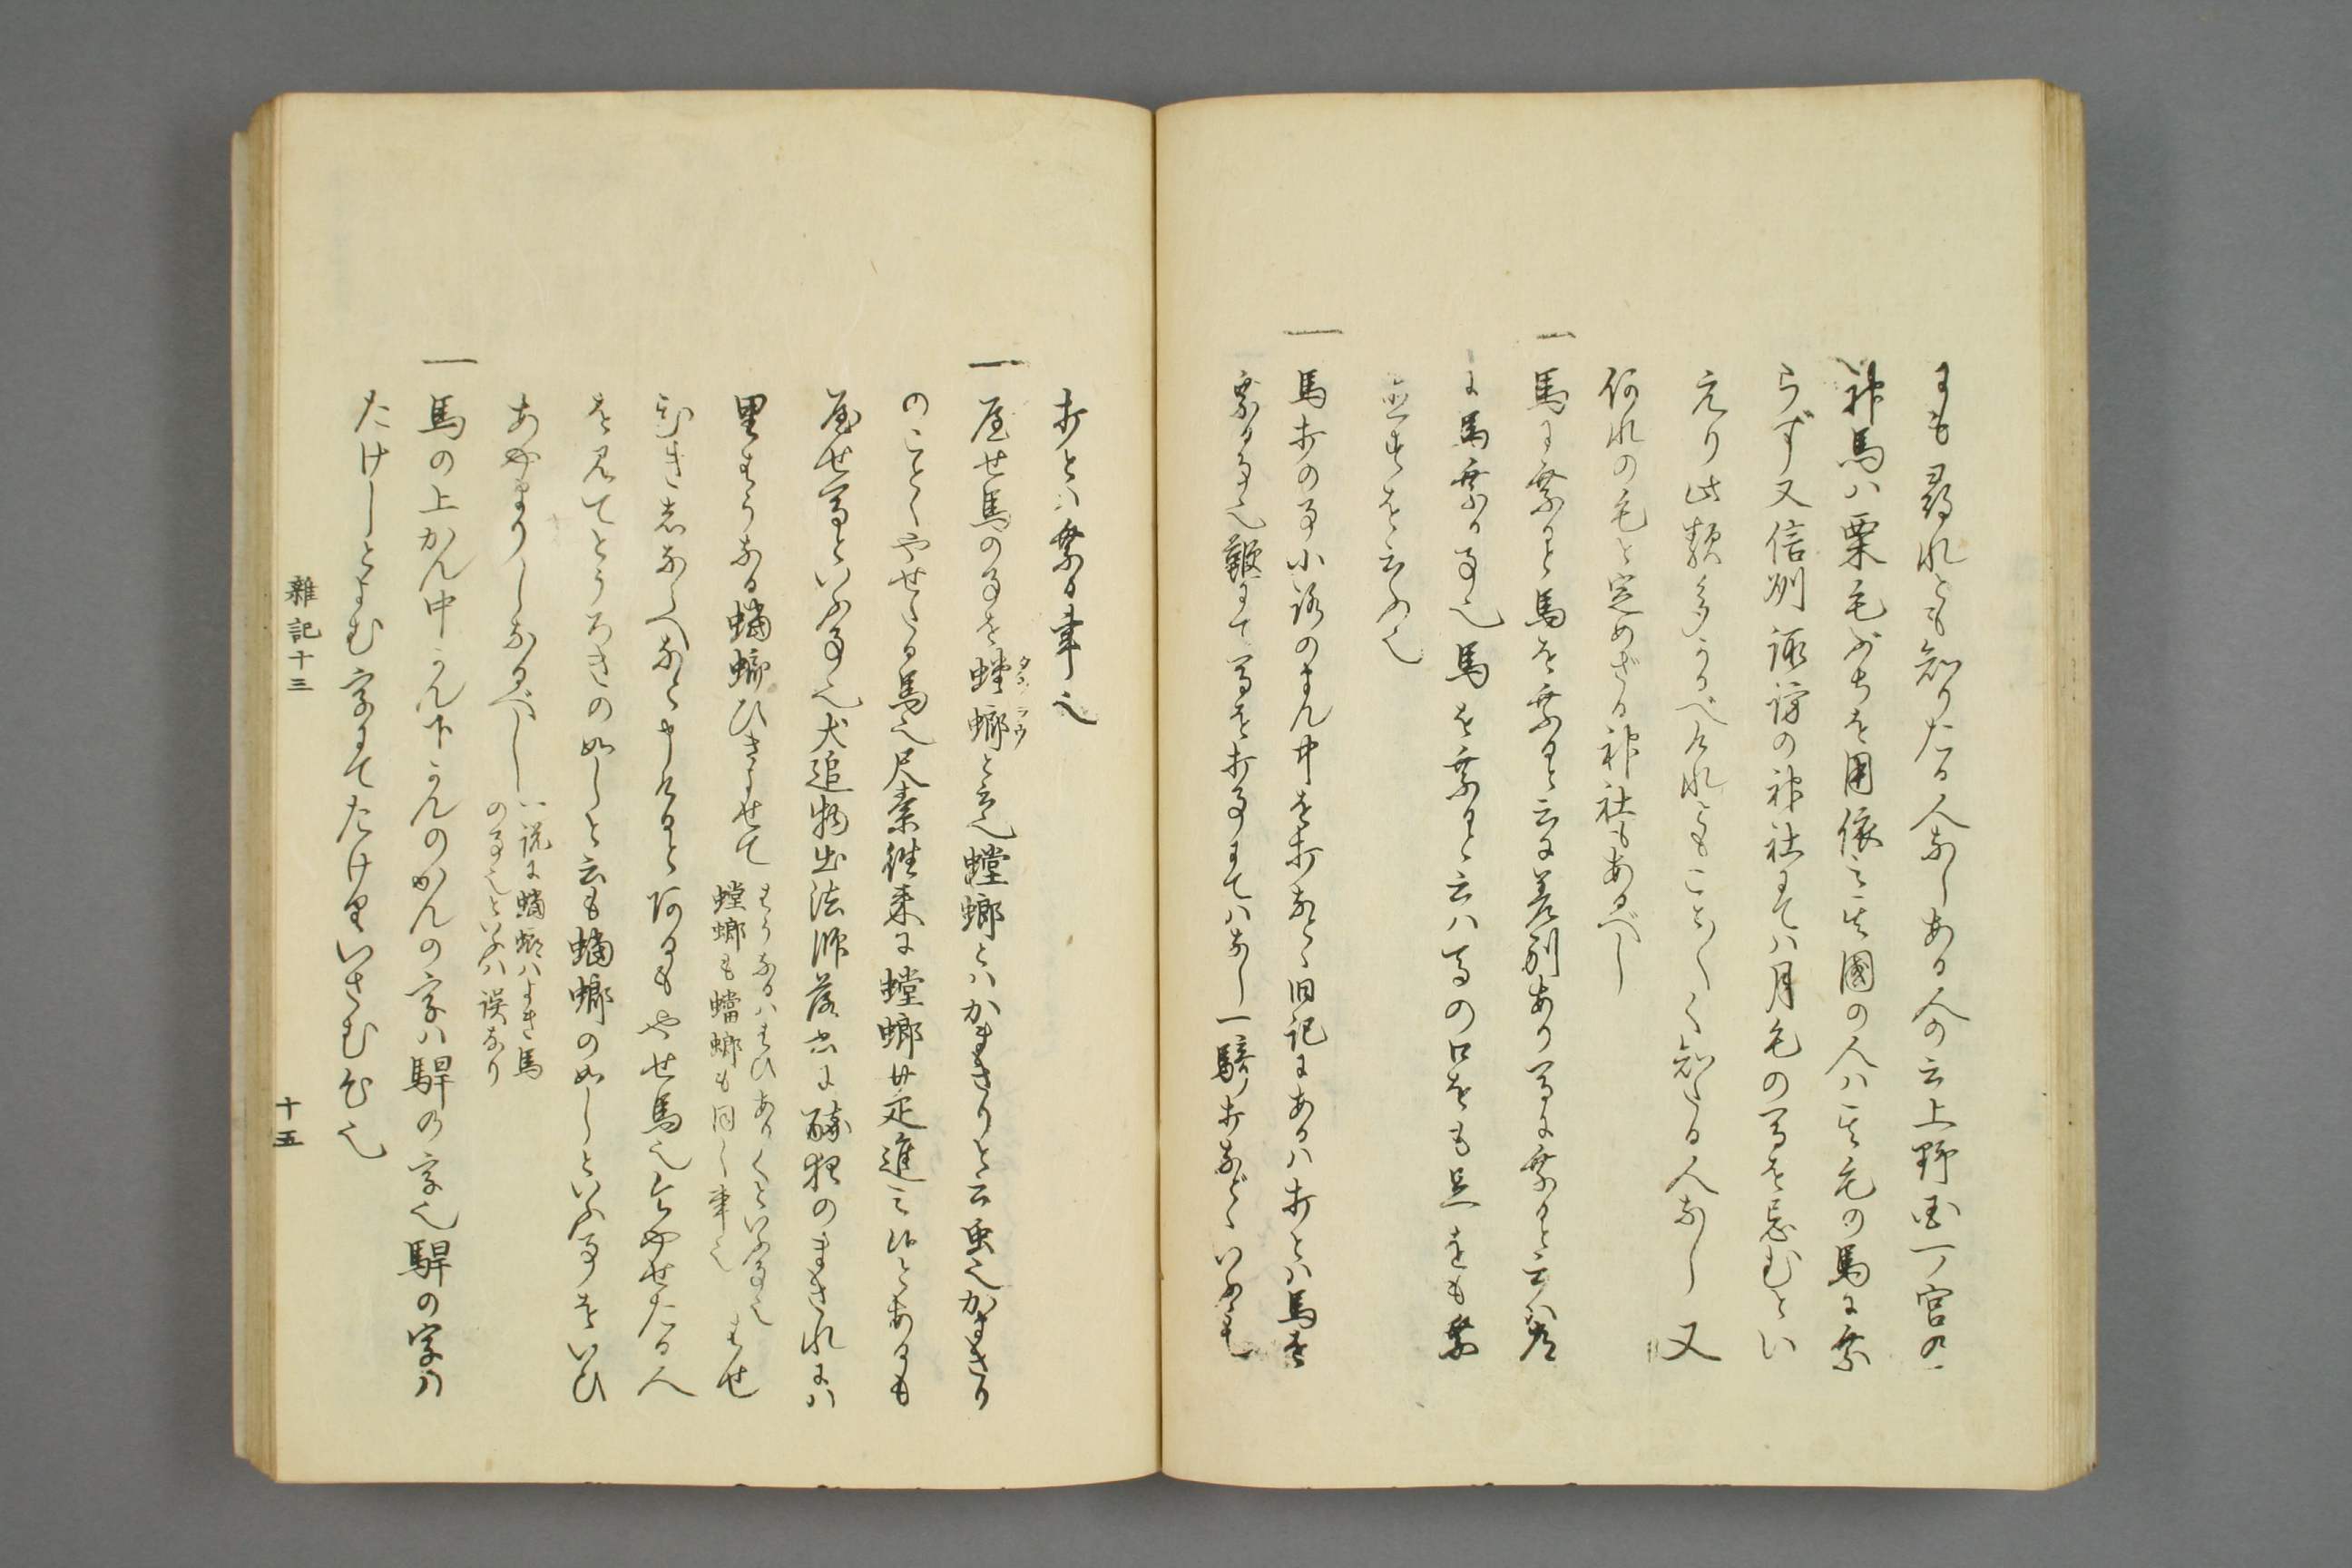 にも尋れとも知りたる人なしある人の云上野国一宮の
神馬ハ栗毛ぶちを用依之其國の人ハ其毛の馬に乗
らず又信州諏訪の神社にてハ月毛の馬を忌むとい
えり此類多かるべけれともことく知たる人なし又
何れの毛と定めざる神社もあるべし
一馬に乗ると馬を乗ると云に差別あり馬に乗ると云ハ
に馬乗る事也馬を乗ると云ハ馬の口をも足をも乗
を云ふ也
一馬打の事小路のまん中を打なと旧記にあるハ打とハ馬を
乗る事也鞭にて馬を打事にてハなし一騎打などいふも
打とハ乗る事也
一屋せ馬の事を蟷螂と云也蟷螂とハかまきりと云虫也かまきり
のことくやせたる馬也尺素往来に蟷螂廿疋進之候とあるも
屋せ馬といふ事也犬追物出法師落書に酔狂のまきれにハ
里もうなる蟷螂ひきよせて
もうなるハもひあるくといふ事也
蟷螂も蟷螂も同し事也
をせ
むき志なへなとさしけると阿るもやせ馬也今やせたる人
を見てとうろきの如しと云も蟷螂の如しといふ事をいひ
あやまりしなるべし
一説に蟷螂ハよき馬
の事也といふハ誤なり
一馬の上かん中かん下かんのかんの字ハ駻の字也駻の字ハ
たけしとよむ字にてたけ里いさむ心也
雜記十三
十五